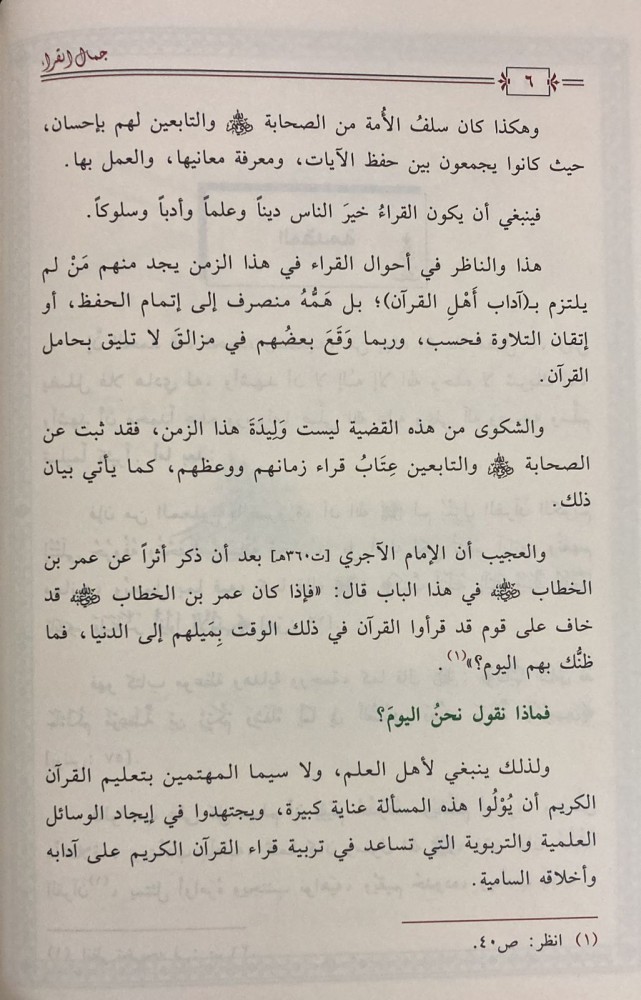 جمال القراء
٦
وهكذا كان سلفُ الأُمة من الصحابة ﵃ والتابعين لهم بإحسان،
حيث كانوا يجمعون بين حفظ الآيات، ومعرفة معانيها، والعمل بها.
فينبغي أن يكون القراءُ خيرَ الناس ديناً وعلماً وأدباً وسلوكاً.
هذا والناظر في أحوال القراء في هذا الزمن يجد منهم مَنْ لم
يلتزم بـ(آداب أَهْلِ القرآن)؛ بل هَمُّهُ منصرف إلى إتمام الحفظ، أو
إتقان التلاوة فحسب، وربما وَقَعَ بعضُهم في مزالقَ لا تليق بحامل
القرآن.
والشكوى من هذه القضية ليست وَلِيدَةَ هذا الزمن، فقد ثبت عن
الصحابة ﵃ والتابعين عِتَابُ قراء زمانهم ووعظهم، كما يأتي بيان
ذلك.
والعجيب أن الإمام الآجري [ت٣٦٠هـ] بعد أن ذكر أثراً عن عمر بن
الخطاب ﵁ في هذا الباب قال: «فإذا كان عمر بن الخطاب ﵁ قد
خاف على قوم قد قرأوا القرآن في ذلك الوقت بِمَيلهم إلى الدنيا، فما
ظنُّك بهم اليوم؟»(١).
فماذا نقول نحنُ اليومَ؟
ولذلك ينبغي لأهل العلم، ولا سيما المهتمين بتعليم القرآن
الكريم أن يُوْلُوا هذه المسألة عناية كبيرة، ويجتهدوا في إيجاد الوسائل
العلمية والتربوية التي تساعد في تربية قراء القرآن الكريم على آدابه
وأخلاقه السامية.
(١) انظر: ص٤٠.